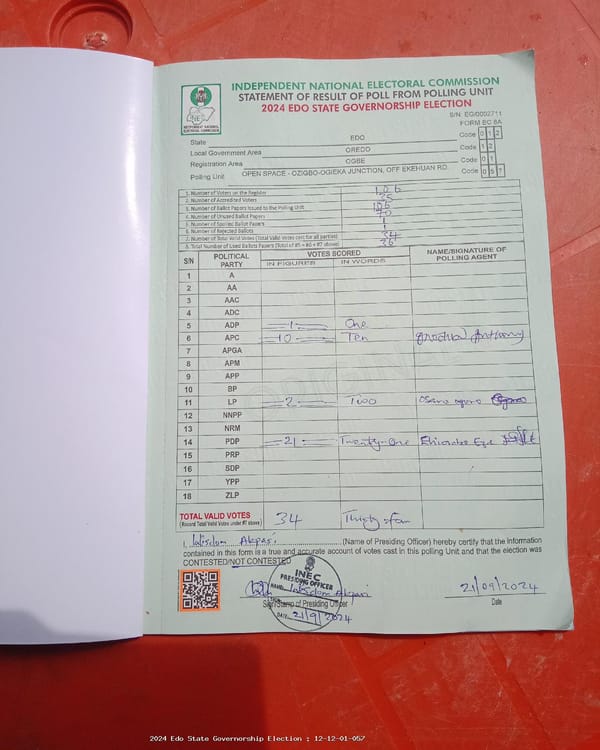 INDEPENDENT NATIONAL ELECTORAL COMMISSION
STATEMENT OF RESULT OF POLL FROM POLLING UNIT
2024 EDO STATE GOVERNORSHIP ELECTION
S/N: EG/0002711
FORM EC 8A
INEC
INDEPENDENT NATIONAL ELECTORAL COMMISSION
State EDO Code 0 1 2
Local Government Area OREDO Code 1 2
Registration Area OGBE Code 0 1
Polling Unit OPEN SPACE - OZIGBO-OGIEKA JUNCTION, OFF EKEHUAN RD. Code 0 5 7
1. Number of Voters on the Register 106
2. Number of Accredited Voters 35
3. Number of Ballot Papers Issued to the Polling Unit 106
4. Number of Unused Ballot Papers 70
5. Number of Spoiled Ballot Papers 1
6. Number of Rejected Ballots 1
7. Number of Total Valid Votes (Total Valid Votes cast for all parties) 34
8. Total Number of Used Ballots Papers (Total of #5 + #6 + #7 above) 36
S/N POLITICAL PARTY VOTES SCORED NAME/SIGNATURE OF POLLING AGENT
IN FIGURES IN WORDS
1 A
2 AA
3 AAC
4 ADC
5 ADP 1 One
6 APC 10 Ten
7 APGA
8 APM
9 APP
10 BP
11 LP 2 Two
12 NNPP
13 NRM
14 PDP 21 Twenty-One
15 PRP
16 SDP
17 YPP
18 ZLP
TOTAL VALID VOTES 34 Thirty four
(Record Total Valid Votes under #7 above)
I, Wisdom Akpari (Name of Presiding Officer) hereby certify that the information
contained in this form is a true and accurate account of votes cast in this polling Unit and that the election was
CONTESTED/NOT CONTESTED
INEC
PRESIDING OFFICER
NAME: Wisdom Akpari
Sign/Stamp of Presiding Officer
DATE 21/9/2024
21/09/2024
Date
2024 Edo State Governorship Election : 12-12-01-057